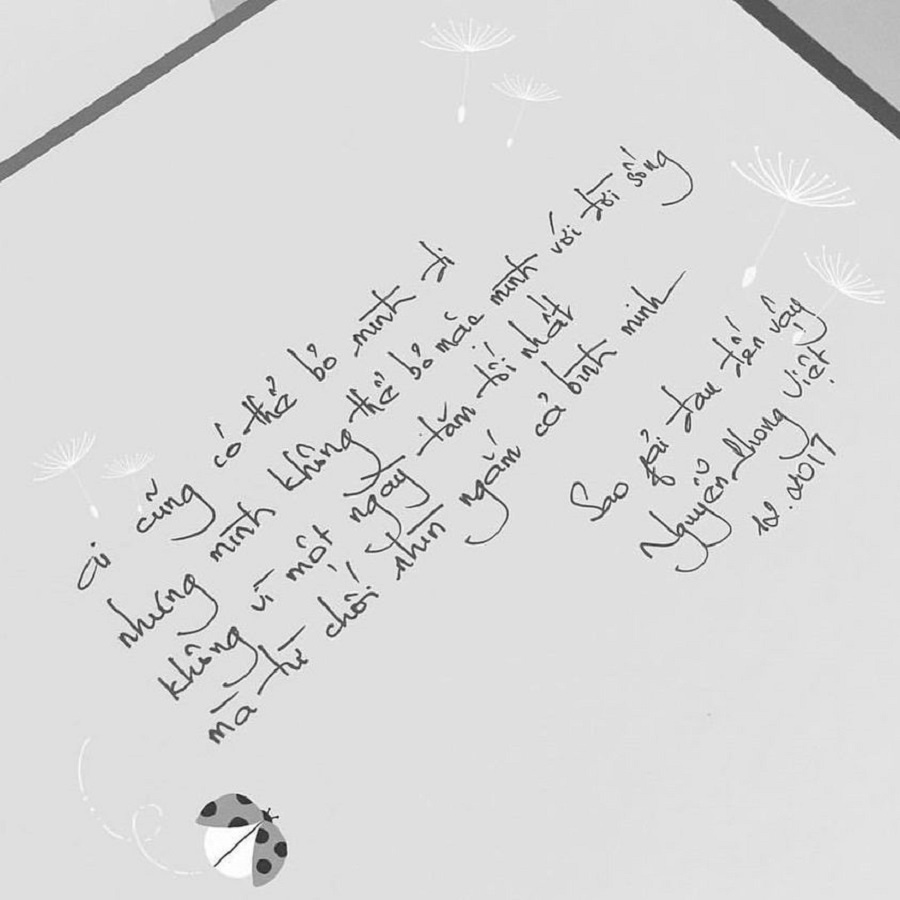 ai cũng có thể bỏ mình đi
nhưng mình không thể bỏ mặc mình với đời sống
không vì một ngày tăm tối nhất
mà từ chối nhìn ngắm cả bình minh
Sao phải đau đến vậy
Nguyễn Phong Việt
12.2017